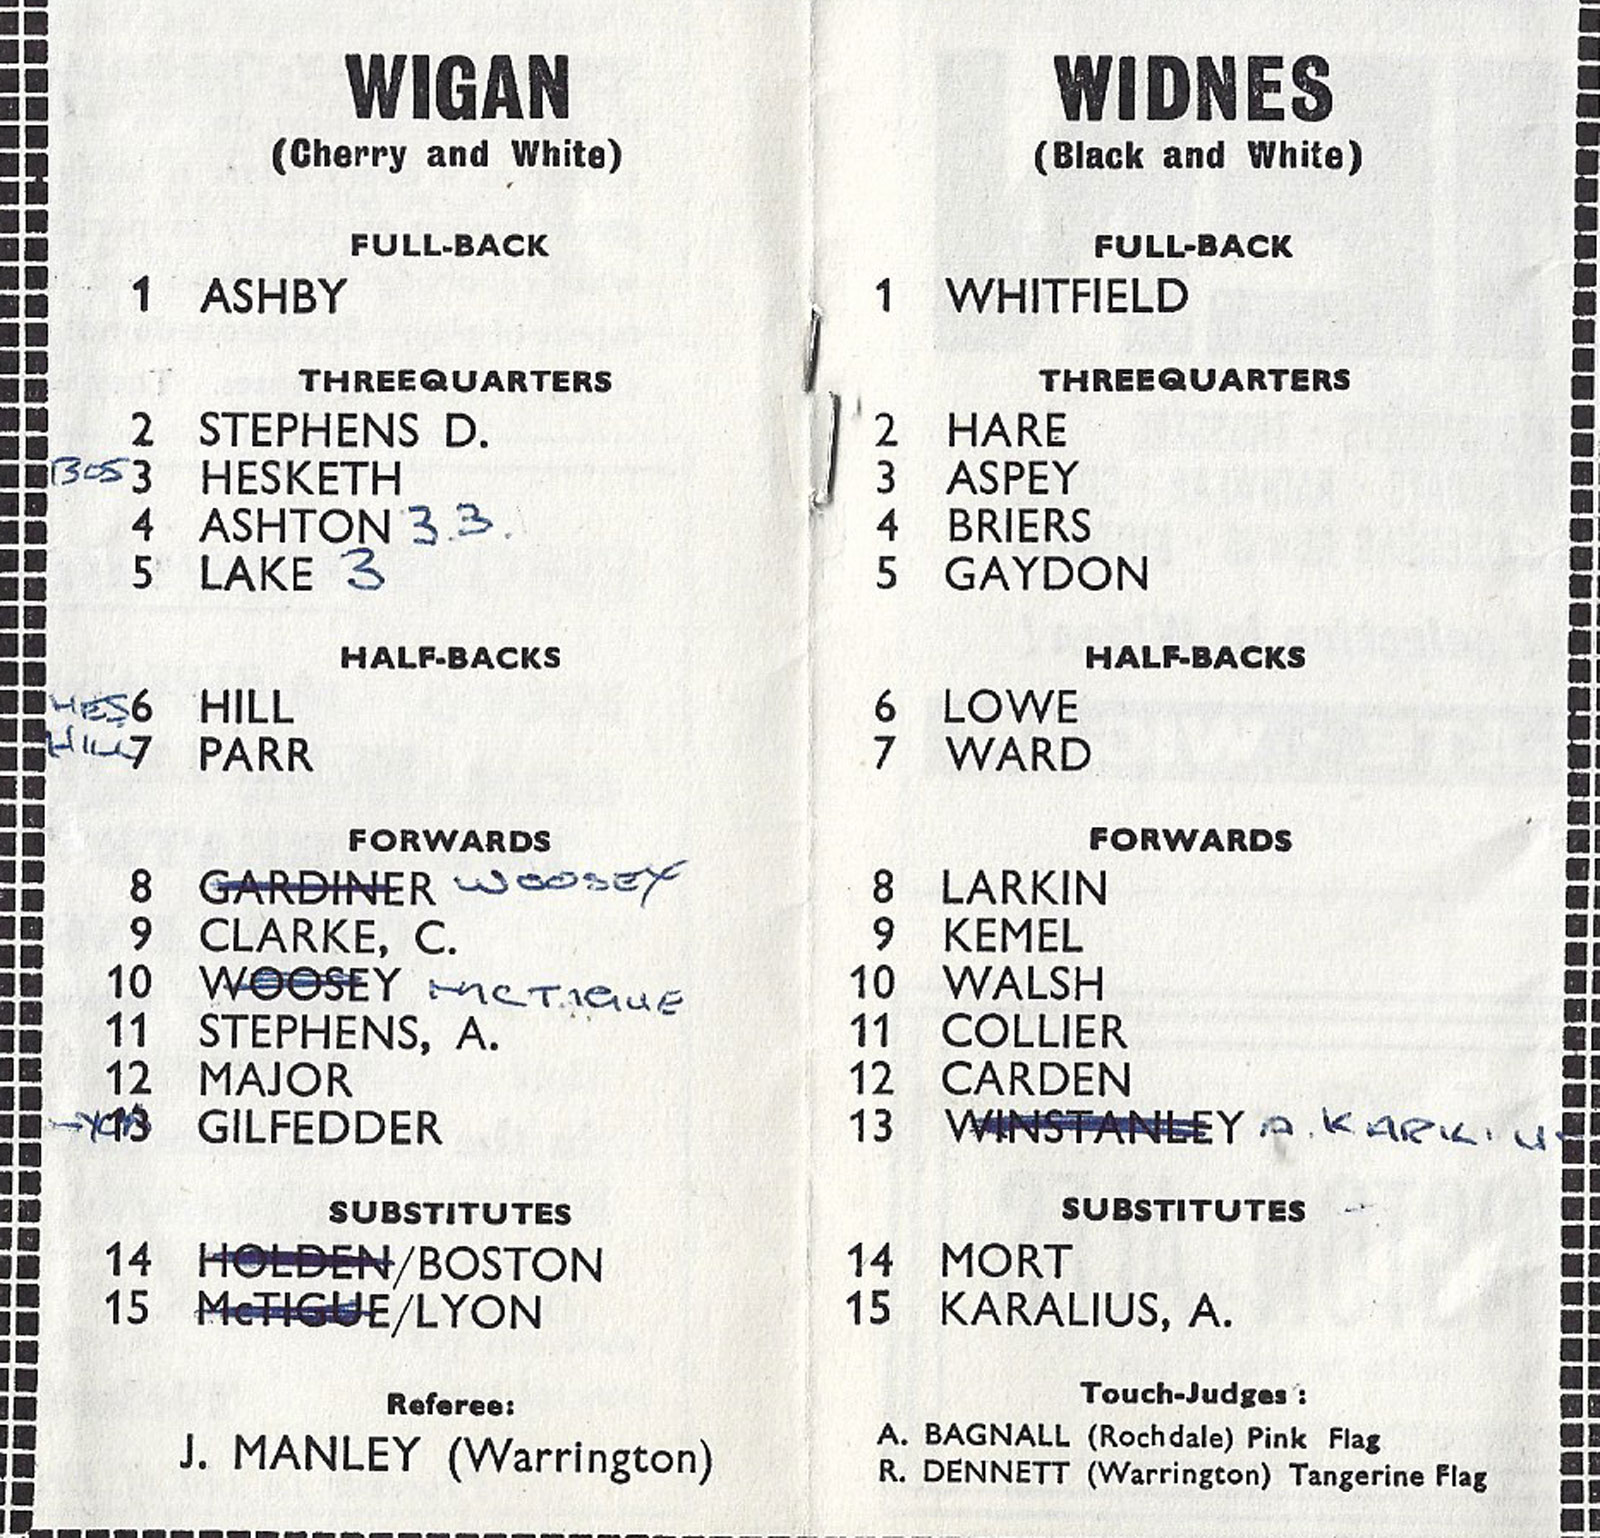 WIGAN
(Cherry and White)
FULL-BACK
1 ASHBY
THREEQUARTERS
2 STEPHENS D.
BOS 3 HESKETH
4 ASHTON 3.3.
5 LAKE 3
HALF-BACKS
HES 6 HILL
HILL 7 PARR
FORWARDS
8 GARDINER WOOSEY
9 CLARKE, C.
10 WOOSEY McTIGUE
11 STEPHENS, A.
12 MAJOR
LYON 13 GILFEDDER
SUBSTITUTES
14 HOLDEN/BOSTON
15 McTIGUE/LYON
Referee:
J. MANLEY (Warrington)
WIDNES
(Black and White)
FULL-BACK
1 WHITFIELD
THREEQUARTERS
2 HARE
3 ASPEY
4 BRIERS
5 GAYDON
HALF-BACKS
6 LOWE
7 WARD
FORWARDS
8 LARKIN
9 KEMEL
10 WALSH
11 COLLIER
12 CARDEN
13 WINSTANLEY A.
SUBSTITUTES
14 MORT
15 KARALIUS, A.
Touch-Judges :
A. BAGNALL (Rochdale) Pink Flag
R. DENNETT (Warrington) Tangerine Flag